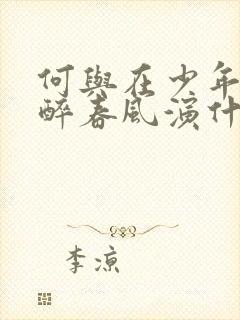 何與在少年
醉春風演什
李凉